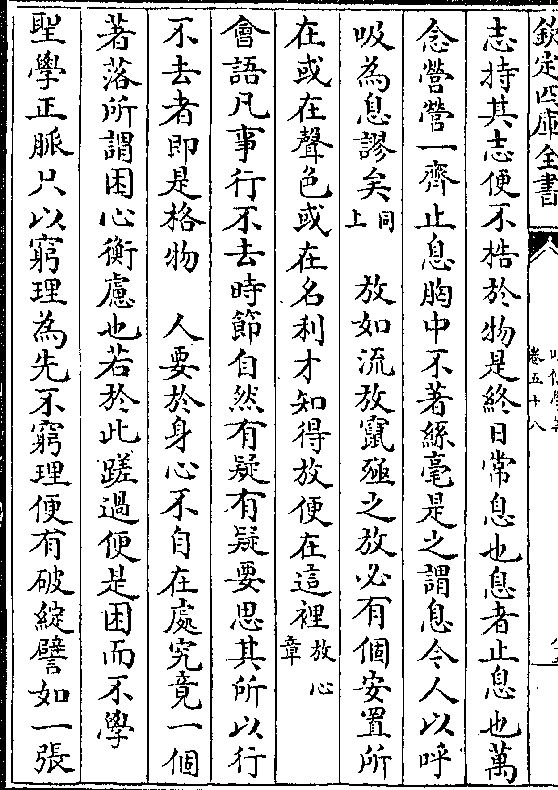 欽定四庫全書
卷五十八
志持其志便不梏於物是終日常息也息者止息也萬
念營營一齊止息胸中不著絲毫是之謂息今人以呼
吸為息謬矣同上　放如流放竄殛之放必有個安置所
在或在聲色或在名利才知得放便在這裡放心章
會語凡事行不去時節自然有疑有疑要思其所以行
不去者即是格物　人要於身心不自在處究竟一個
著落所謂困心衡慮也若於此蹉過便是困而不學
聖學正脈只以窮理為先不窮理便有破綻譬如一張